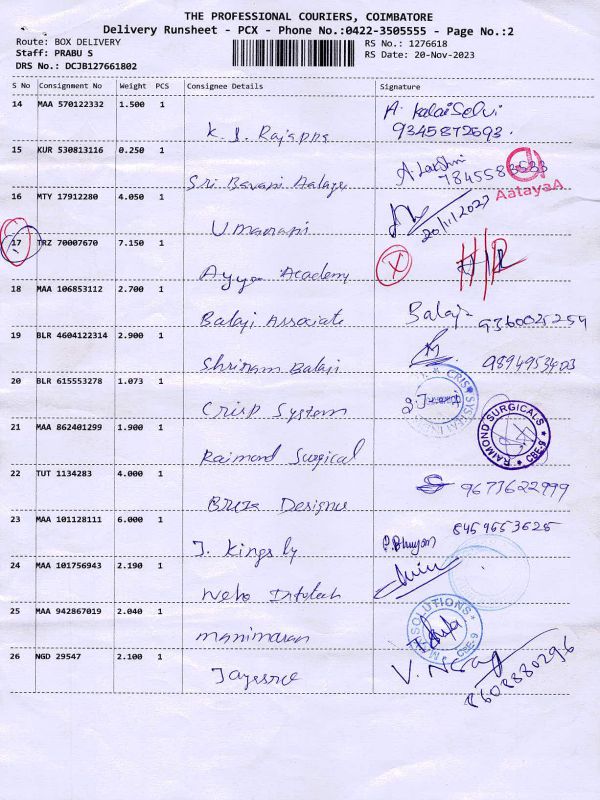 THE PROFESSIONAL COURIERS, COIMBATORE
Delivery Runsheet - PCX - Phone No.:0422-3505555 - Page No.:2
Route: BOX DELIVERY RS No.: 1276618
Staff: PRABU S RS Date: 20-Nov-2023
DRS No.: DCJB127661802
S No Consignment No Weight PCS Consignee Details Signature
14 MAA 570122332 1.500 1 A. KalaiSelvi
K. J. Rajappa 9345872693.
15 KUR 530813116 0.250 1 A. Lakshmi
Sri Bavani 7845583583
AatayaA
16 MTY 17912280 4.050 1
Umarani 20/11/2023
17 TRZ 70007670 7.150 1 X
Ayya Academy
18 MAA 106853112 2.700 1 Balaji
Balaji Associate 9360025259
19 BLR 4604122314 2.900 1
Shriram Balaji 9894953403
20 BLR 615553278 1.073 1
Crisp System
21 MAA 862401299 1.900 1 RAIMOND SURGICALS
Raimond Surgical CBE-9
22 TUT 1134283 4.000 1 9673622999
Designer
23 MAA 101128111 6.000 1 8459653625
J. Kingsly
24 MAA 101756943 2.190 1
Infotech
25 MAA 942867019 2.040 1 SOLUTIONS
manimaran CBE-9
26 NGD 29547 2.100 1
8608880296